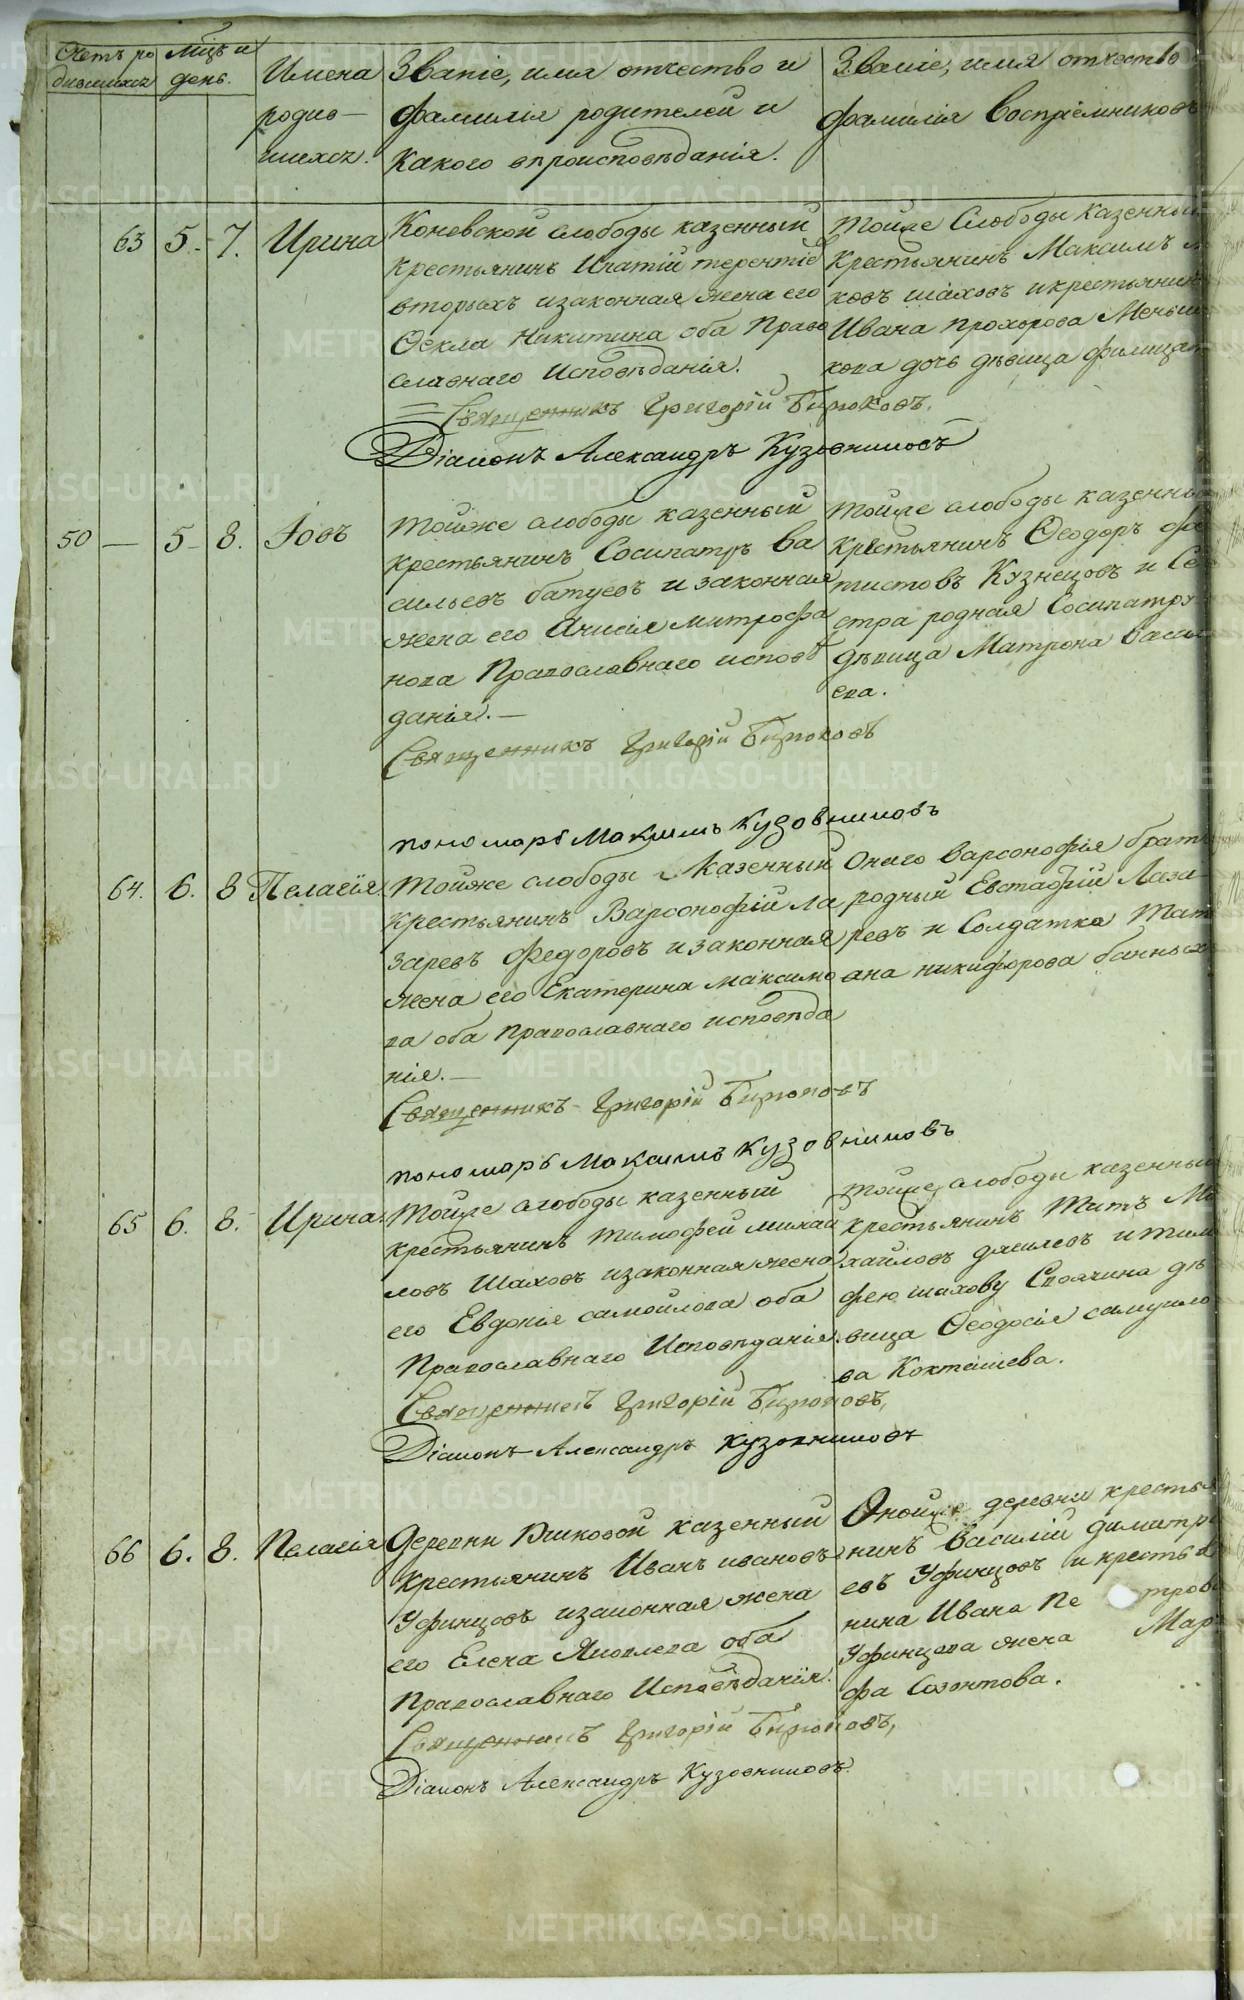 Счетъ ро
дившихся
Мцъ и
день.
Имена
родив—
шихся.
Званіе, имя отчество и
фамилія родителей и
какого вероисповѣданія.
Званіе, имя отчество
фамилія воспріемниковъ
63 5. 7. Ирина
Коневской слободы казенный
крестьянинъ Ипатій терентіев
вторыхъ изаконная жена его
Ѳекла Никитина оба Право
славнаго Исповѣданія.
Священникъ Григорій Бирюковъ.
Діаконъ Александръ Кузовниковъ
тойже Слободы казенный
крестьянинъ Максимъ
ковъ шаховъ икрестьянина
Ивана прохорова Меньши
кова дочь дѣвица филицата
50 — 5 8. Іовъ
тойже слободы казенный
крестьянинъ Сосипатръ Ва
сильевъ батуевъ и законная
жена его Анисія митрофа
нова Православнаго исповѣ
данія.—
Священникъ Григорій Бирюковъ
пономарь Максимъ Кузовниковъ
тойже слободы казенный
крестьянинъ Ѳеодоръ
тистовъ Кузнецовъ и Се
стра родная Сосипатру
дѣвица Матрона Васил
ева.
64. 6. 8 Пелагія
Тойже слободы казенный
крестьянинъ Варсонофій ла
заревъ Федоровъ изаконная
жена его Екатерина максимо
ва оба православнаго исповѣда
нія.—
Священникъ Григорій Бирюковъ
пономарь Максимъ Кузовниковъ
Онаго Варсонофія братъ
родный Евстафій Лаза
ревъ и Солдатка Тать
яна никифорова банныхъ
65 6. 8. Ирина.
Тойже слободы казенный
крестьянинъ тимофей михай
ловъ Шаховъ изаконная жена
его Евдокія самойлова оба
Православнаго Исповѣданія.
Священникъ Григорій Бирюковъ,
Діаконъ Александръ Кузовниковъ
тойже слободы казенный
крестьянинъ Титъ Ми
хайловъ и тимо
фею шахову Своячина дѣ
вица Ѳеодосія самуило
ва Коктышева.
66 6. 8. Пелагія
Деревни казенный
крестьянинъ Иванъ ивановъ
Уфинцовъ изаконная жена
его Елена Яковлева оба
Православнаго Исповѣданія.
Священникъ Григорій Бирюковъ,
Діаконъ Александръ Кузовниковъ.
Онойже деревни кресть
нинъ Василій димитрі
евъ Уфинцовъ и кресть
нина Ивана Петрова
Уфинцова жена Мар
фа Созонтова.
METRIKI.GASO-URAL.RU